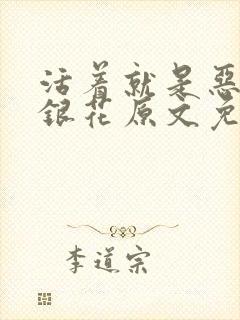 活着就是恶
银花原文免
李道宗